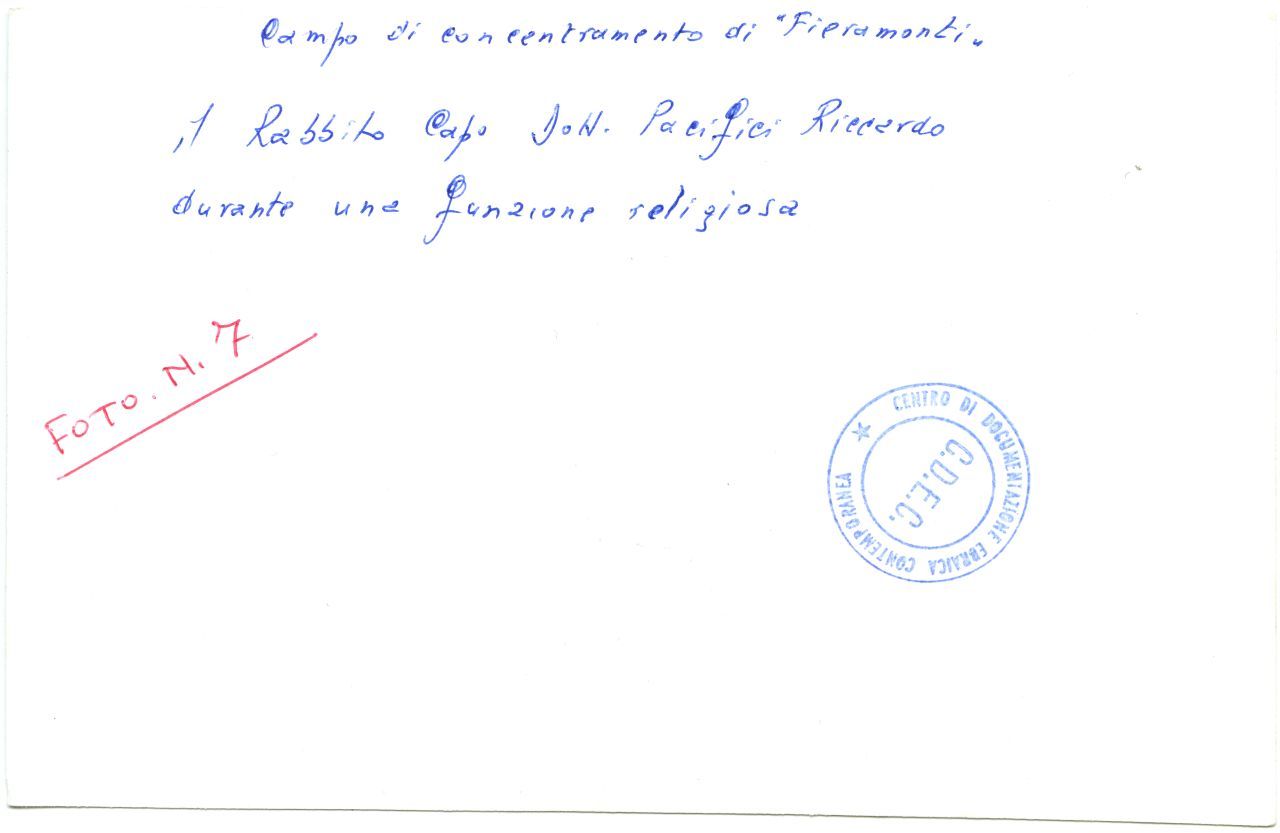 Campo di concentramento di "Fieramonti"
il Rabbito Capo Dott. Pacifici Riccardo
durante una funzione religiosa
FOTO. N. 7
CENTRO DI DOCUMENTAZIONE EBRAICA CONTEMPORANEA
C.D.E.C.